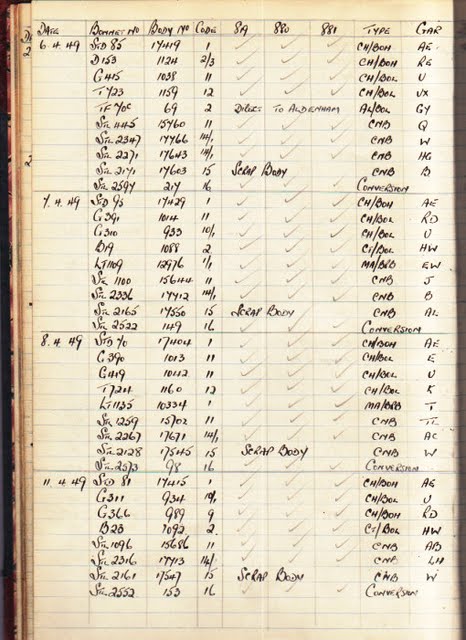 DATE BONNET NO BODY NO CODE SA 880 881 TYPE GAR
6.4.49 STD 85 17419 1 ✓ ✓ ✓ CH/BOH AE
D153 1124 2/3 ✓ ✓ ✓ CH/BOH RE
G415 1038 11 ✓ ✓ ✓ CH/BOL U
T723 1159 12 ✓ ✓ ✓ CH/BOL UX
69 2 DIRECT TO ALDENHAM AL/BOL GY
STL 1445 15760 11 ✓ ✓ ✓ CNB Q
STL 2347 17766 14/1 ✓ ✓ ✓ CNB W
STL 2271 17643 14/1 ✓ ✓ ✓ CNB HG
STL 2171 17603 15 SCRAP BODY ✓ ✓ CNB B
STL 2594 217 16 CONVERSION
7.4.49 STD 95 17429 1 ✓ ✓ ✓ CH/BOH AE
G391 1014 11 ✓ ✓ ✓ CH/BOL RD
G310 933 10/1 ✓ ✓ ✓ CH/BOL U
B19 1088 2 ✓ ✓ ✓ CI/BOL HW
LT1109 12976 1/1 ✓ ✓ ✓ MA/BRB EW
STL 1100 15644 11 ✓ ✓ ✓ CNB J
STL 2336 17712 14/1 ✓ ✓ ✓ CNB B
STL 2165 17550 15 SCRAP BODY ✓ CNB AL
STL 2522 149 16 CONVERSION
8.4.49 STD 70 17404 1 ✓ ✓ ✓ CH/BOH AE
G390 1013 11 ✓ ✓ ✓ CH/BOL E
G419 1042 11 ✓ ✓ ✓ CH/BOL U
T724 1160 12 ✓ ✓ ✓ CH/BOL K
LT1135 10334 1 ✓ ✓ ✓ MA/BRB T
STL 1259 15702 11 ✓ ✓ ✓ CNB
STL 2267 17671 14/1 ✓ ✓ ✓ CNB AC
STL 2128 17545 15 SCRAP BODY ✓ CNB W
STL 2573 98 16 CONVERSION
11.4.49 STD 81 17415 1 ✓ ✓ ✓ CH/BOH AE
G311 934 10/1 ✓ ✓ ✓ CH/BOL U
G366 989 9 ✓ ✓ ✓ CH/BOH RD
B23 1092 2 ✓ ✓ ✓ CI/BOL HW
STL 1096 15686 11 ✓ ✓ ✓ CNB AB
STL 2316 17713 14/1 ✓ ✓ ✓ CNB LH
STL 2161 17547 15 SCRAP BODY ✓ CNB W
STL 2552 153 16 CONVERSION